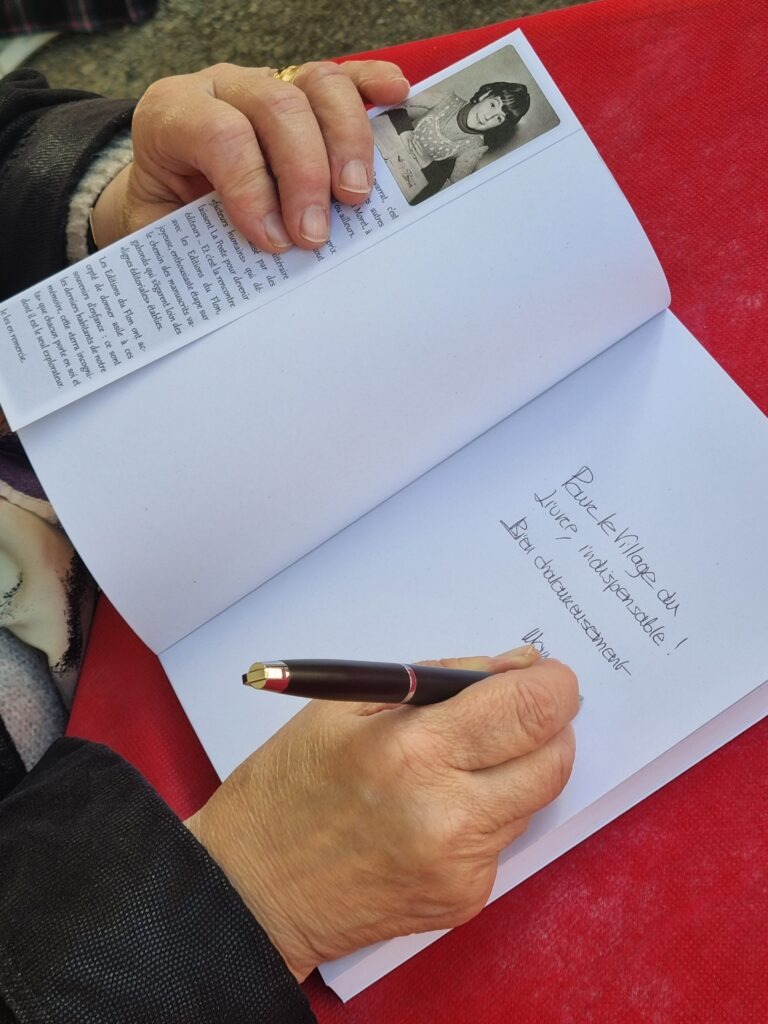 Gavarrat, c'est
es autres
Moret, à
ou ailleurs.
tout
orce
littéraire
usé par des
«facteurs humains» qui dé-
laissent La Poste pour devenir
éditeurs – Et c'est la rencontre
avec les Editions du Flon,
joyeuse, enthousiaste étape sur
le chemin des manuscrits va-
gabonds qui s'égarent loin des
«lignes éditoriales» établies.
Les Editions du Flon ont ac-
cepté de donner asile à ces
souvenirs d'enfance : ce sont
les derniers habitants de notre
mémoire, cette «terra incogni-
ta» que chacun porte en soi et
dont il est le seul explorateur.
Je les en remercie.
Pour le Village du
Livre, indispensable !
Bien chaleureusement